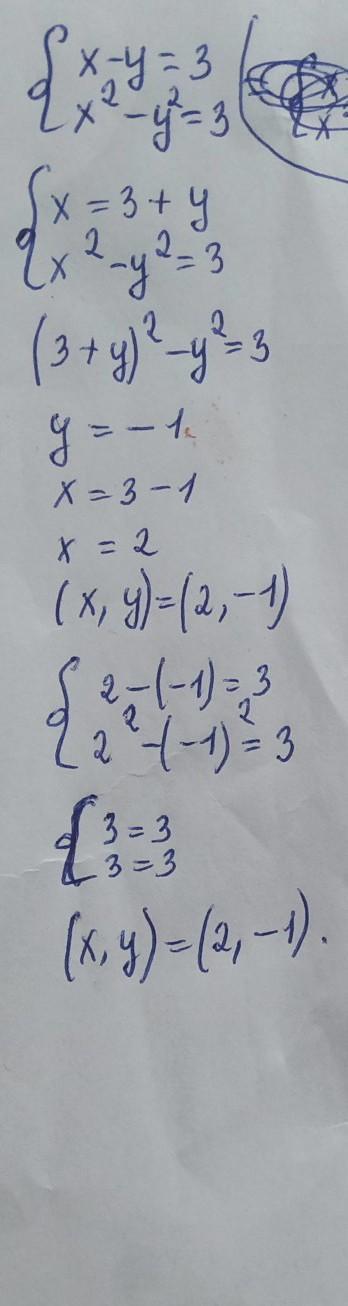 x - y = 3
x² - y² = 3
x = 3 + y
x² - y² = 3
(3 + y)² - y² = 3
y = - 1
x = 3 - 1
x = 2
(x, y) = (2, -1)
2 - (-1) = 3
2² - (-1)² = 3
3 = 3
3 = 3
(x, y) = (2, -1).